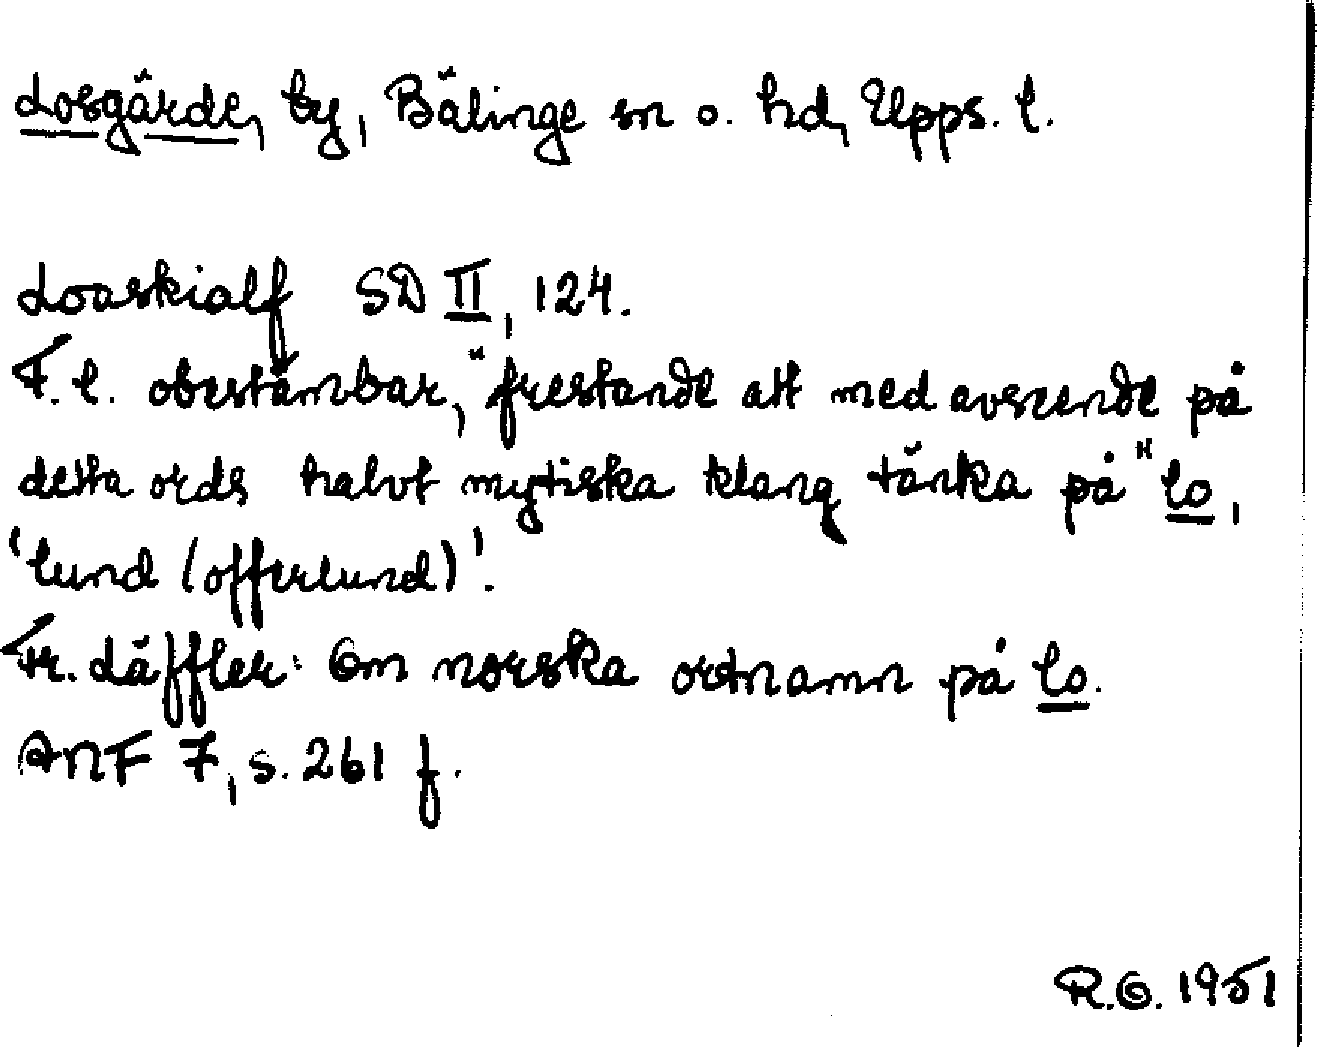 Losgärde, by, Bälinge sn o. hd, Upps. l.
Loaskialf SD II, 124.
F.l. obestämbar, "frestande att med avseende på
detta ords halvt mytiska klang tänka på" lo,
'lund (offerlund)'.
Fr. Läffler: Om norska ortnamn på lo.
ANF 7, s. 261 f.
R.O. 1951